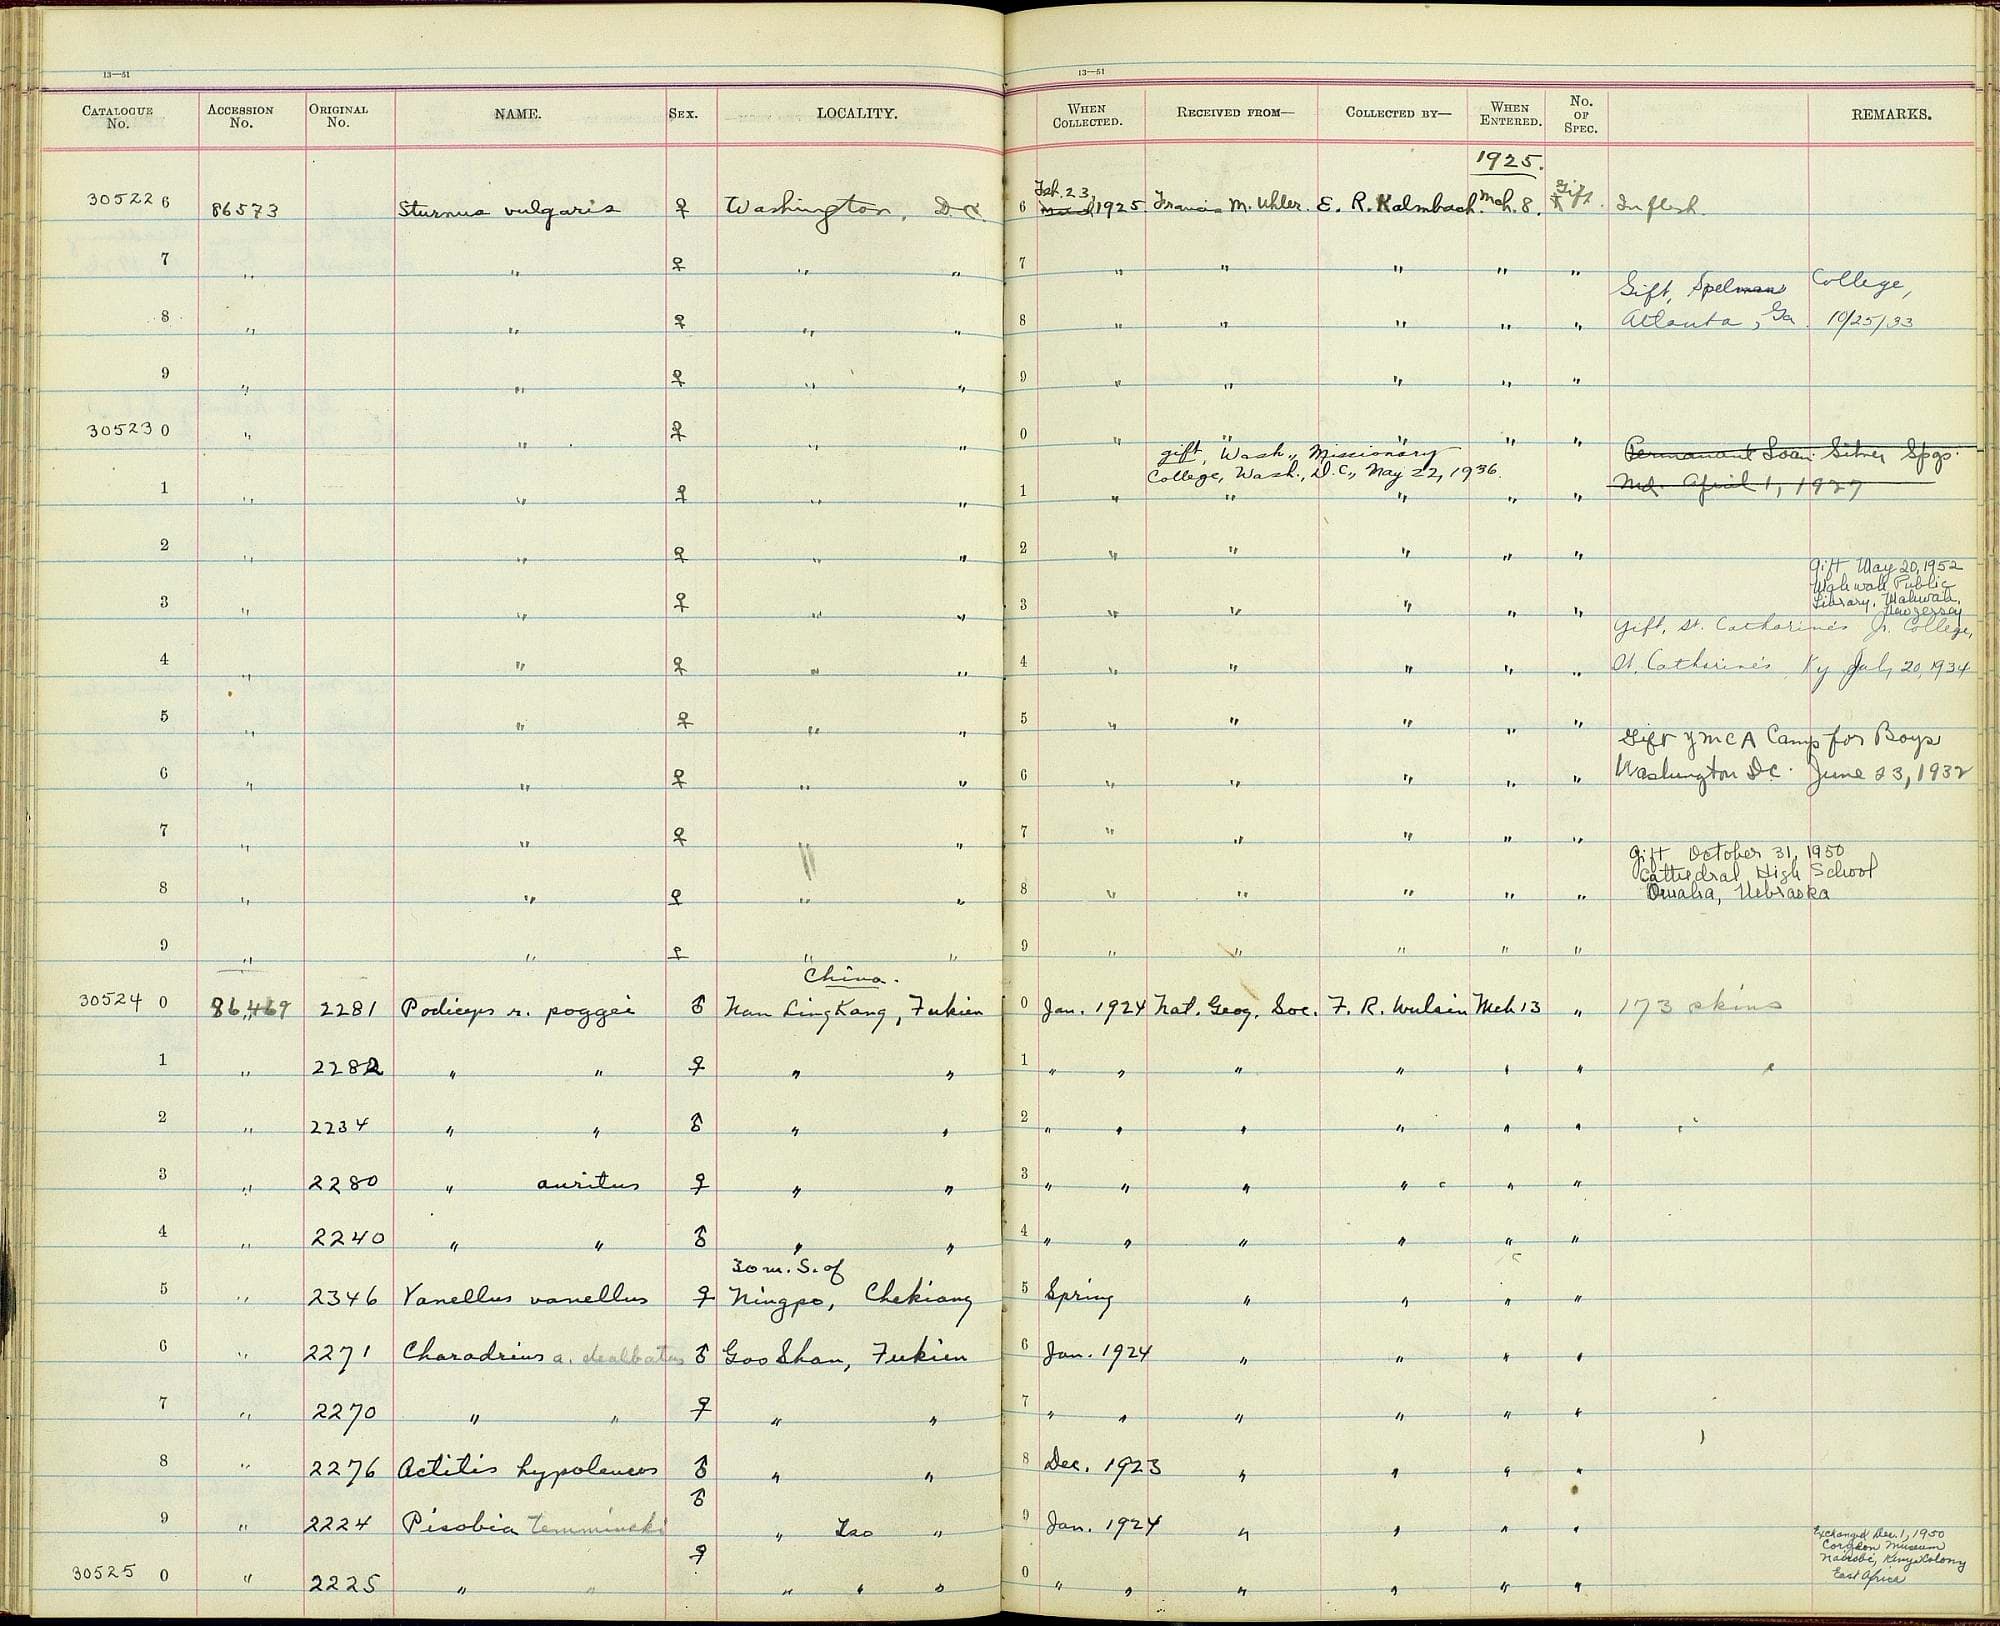 13—51
13—51
CATALOGUE No. ACCESSION No. ORIGINAL No. NAME. SEX. LOCALITY. WHEN COLLECTED. RECEIVED FROM— COLLECTED BY— WHEN ENTERED. No. OF SPEC. REMARKS.
1925.
305226 86573 Sturnus vulgaris ♀ Washington, D.C. 6 Feb. 23, 1925 Francis M. Uhler. E. R. Kalmbach. Mch. 8. Gift. In flesh.
7 " " ♀ " " 7 " " " " "
Gift, Spelman College,
8 " " ♀ " " 8 " " " " " Atlanta, Ga. 10/25/33
9 " " ♀ " " 9 " " " " "
305230 " " ♀ " " 0 " " " " "
gift, Wash., Missionary Permanant Loan Silver Spgs.
College, Wash., D.C., May 22, 1936.
1 " " ♀ " " 1 " " " " " Md. April 1, 1927
2 " " ♀ " " 2 " " " " "
Gift May 20, 1952
Mahwah Public
Library, Mahwah,
New Jersey
3 " " ♀ " " 3 " " " " "
Gift, St. Catharine's Jr. College,
4 " " ♀ " " 4 " " " " " St. Catharine's Ky July 20, 1934
5 " " ♀ " " 5 " " " " "
Gift YMCA Camp for Boys
6 " " ♀ " " 6 " " " " " Washington D.C. June 23, 1932
7 " " ♀ " " 7 " " " " "
Gift October 31, 1950
Cathedral High School
8 " " ♀ " " 8 " " " " " Omaha, Nebraska
9 " " ♀ " " 9 " " " " "
China.
305240 86,469 2281 Podiceps r. poggei ♂ Nan Ling Kang, Fukien 0 Jan. 1924 Nat. Geog. Soc. F. R. Wulsin Mch 13 " 173 skins
1 " 2282 " " ♀ " " 1 " " " " " "
2 " 2234 " " ♂ " " 2 " " " " " "
3 " 2280 " auritus ♀ " " 3 " " " " " "
4 " 2240 " " ♂ " " 4 " " " " " "
30 m. S. of
5 " 2346 Vanellus vanellus ♀ Ningpo, Chekiang 5 Spring " " " "
6 " 2271 Charadrius a. dealbatus ♂ Goo Shan, Fukien 6 Jan. 1924 " " " "
7 " 2270 " " ♀ " " 7 " " " " " "
8 " 2276 Actitis hypoleucos ♂ " " 8 Dec. 1923 " " " "
9 " 2224 Pisobia temmincki ♂ " Tso " 9 Jan. 1924 " " " "
Exchanged Dec. 1, 1950
Coryndon Museum
Nairobi, Kenya Colony
East Africa
305250 " 2225 " " ♀ " " " 0 " " " " " "